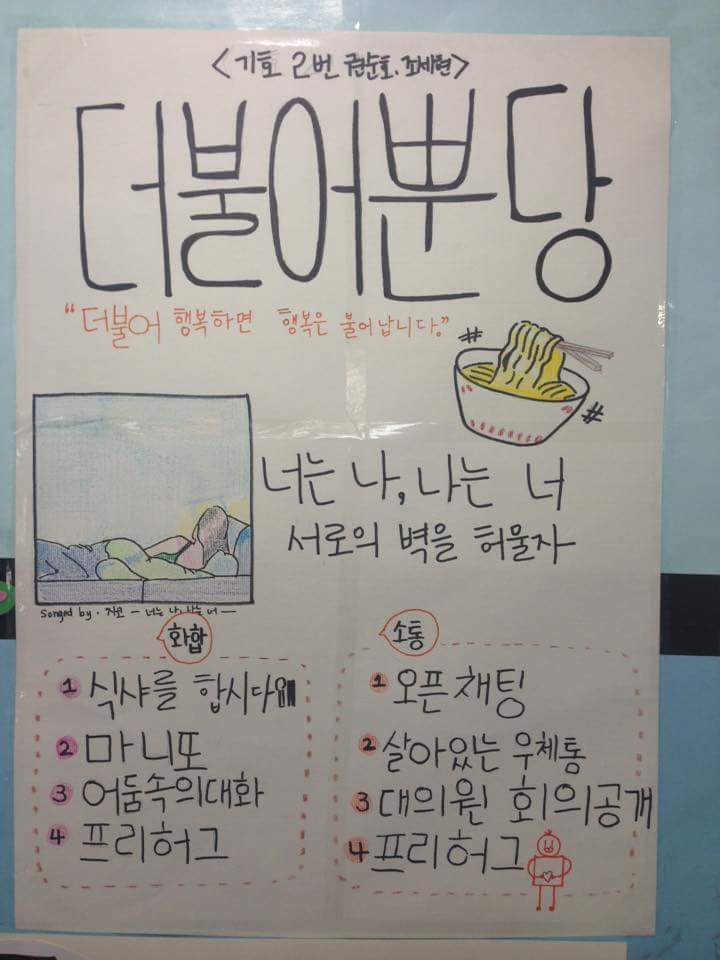 <기호 2번 권순호. 조세현>
더불어뿐당
"더불어 행복하면 행복은 불어납니다."
너는 나, 나는 너
서로의 벽을 허물자
songed by. 지코 - 너는 나, 나는 너 -
화합
1 식샤를 합시다
2 마니또
3 어둠속의대화
4 프리허그
소통
1 오픈채팅
2 살아있는 우체통
3 대의원 회의공개
4 프리허그